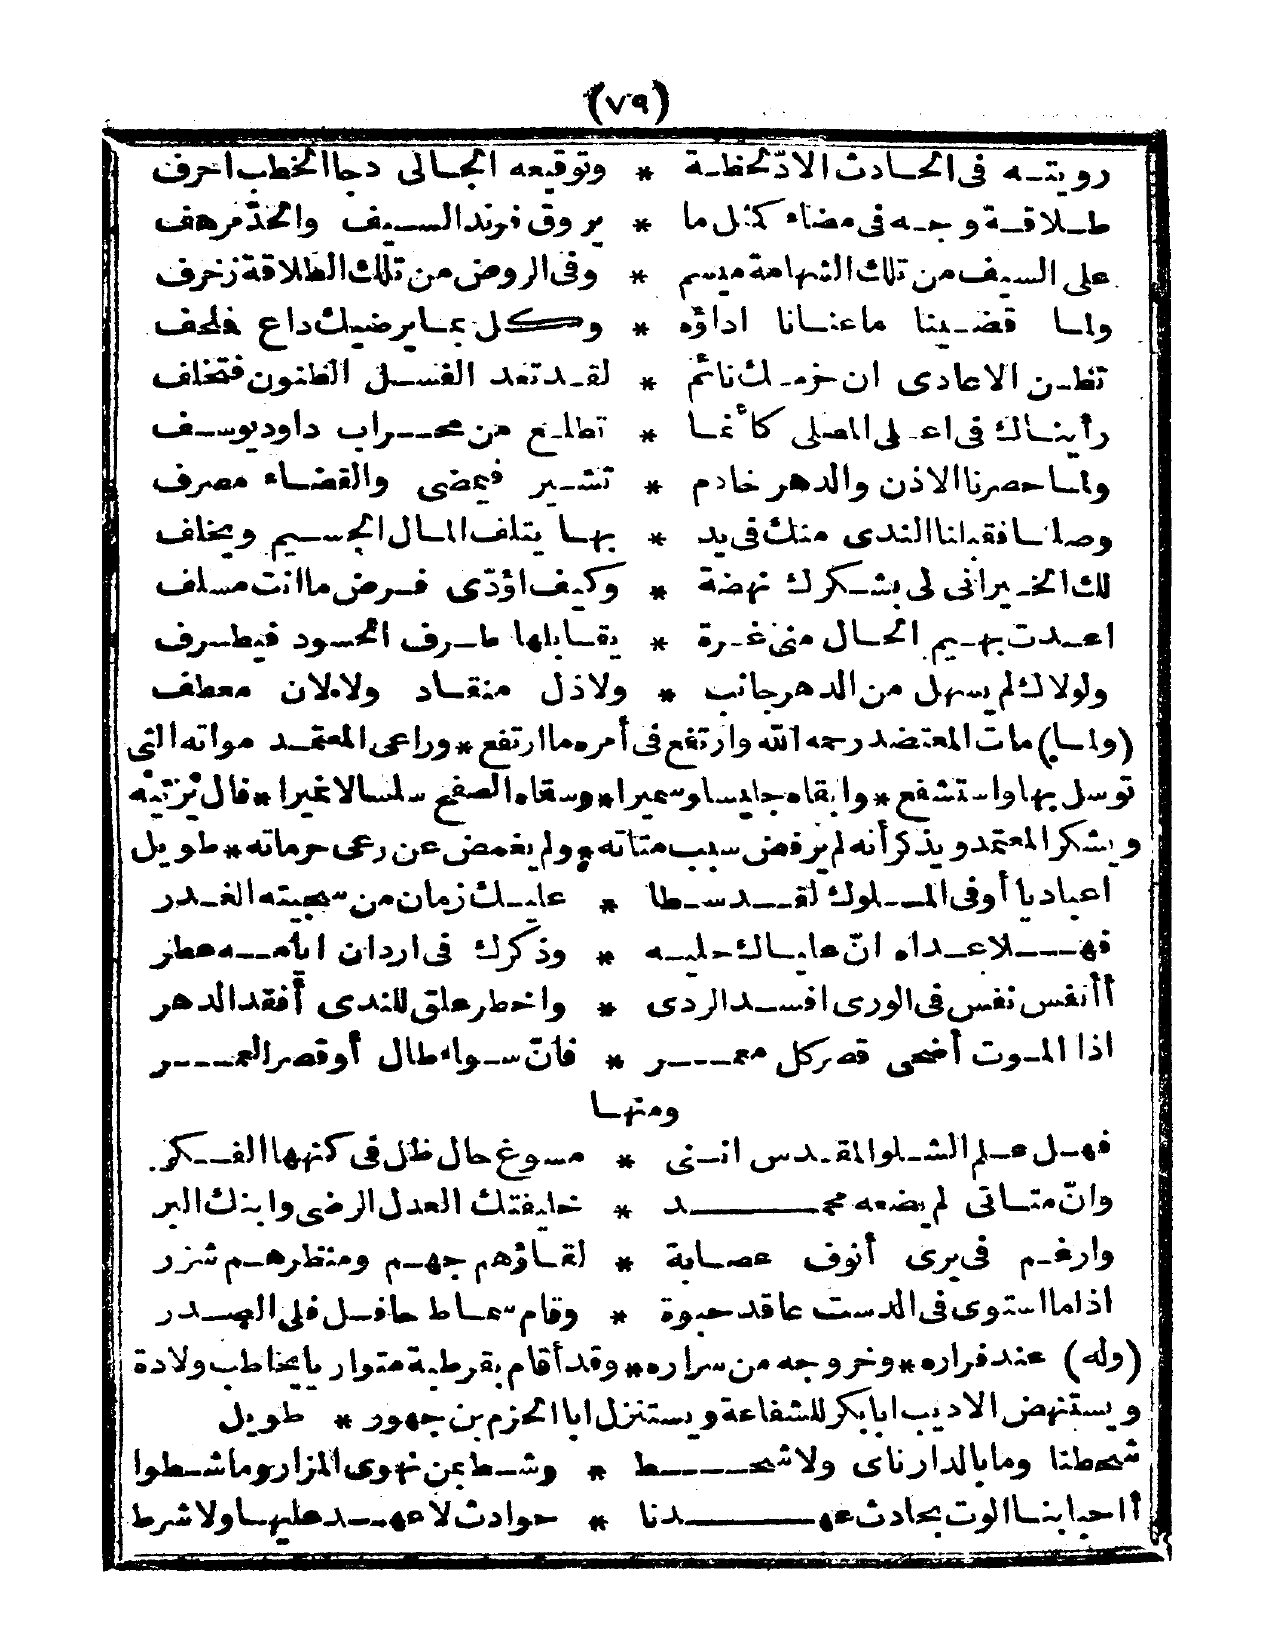 (٧٩)
رويتـه فى الحـادث الادّ لحظـة * وتوقيعه الجـالى دجا الخطب احرف
طـلاقـة وجـه فى مضاء كمثل ما * يروق فرند السـيف والحدّ مرهف
على السيف من تلك الشهامة ميسم * وفى الروض من تلك الطلاقة زخرف
ولمـا قضـينا ماعنـانا اداؤه * وكل بمـا يرضيك داع فملحف
تظـن الاعادى ان حزمـك نائم * لقـد تعد الفسـل الظنون فتخلف
رأينـاك فى اعـلى المصلى كأنمـا * تطلـع من محـراب داود يوسـف
ولمـا حضرنا الاذن والدهر خادم * تشـير فيمضى والقضـاء مصرف
وصلنـا فقبلنا الندى منك فى يد * بهـا يتلف المـال الجسـيم ويخلف
لك الخـير انى لى بشـكرك نهضة * وكيف اؤدّى فـرض ما انت مسلف
اعـدت بهـيم الحـال منى غـرة * يقـابلها طـرف الحسود فيطـرف
ولولاك لم يسهل من الدهر جانب * ولا ذل منقـاد ولا لان معطف
(ولمـا) مات المعتضد رحمه الله وارتفع فى أمره ما ارتفع * وراعى المعتمـد مواته التى
توسل بها واستشفع * وابقاه جليسا وسميرا * وسقاه الصفح سلسا لا نميرا * قال يرثيه
ويشكر المعتمد ويذكر أنه لم يرفض سبب متاته * ولم يغمض عن رعى حرماته * طويل
اعباد يا أوفى المـلوك لقـد سـطا * عليـك زمان من سجيته الغـدر
فهـلا عـداه انّ عليـاك حليـه * وذكرك فى اردان ايامـه عطر
أأنفس نفس فى الورى اقصـد الردى * واخطر علق للندى أفقد الدهر
اذا المـوت أضحى قصر كل معمـر * فانّ سـواء طال أو قصر العمـر
ومنهـا
فهـل عـلم الشـلو المقـدس انـنى * مسوغ حال ظل فى كنهها الفـكر
وانّ متـاتى لم يضعه محمـد * خليفتك العدل الرضى وابنك البر
وارغـم فى برى أنوف عصـابة * لقـاؤهم جهـم ومنظرهـم شزر
اذا ما استوى فى الدست عاقد حبوة * وقام سمـاط حافـل فلى الصـدر
(وله) عند فراره * وخروجه من سراره * وقد أقام بقرطبة متواريا يخاطب ولادة
ويستنهض الاديب ابا بكر للشفاعة ويستنزل ابا الحزم بن جهور * طويل
شحطنا وما بالدار ناى ولا شحـط * وشـط بمن نهوى المزار وما شـطوا
أاحبابنـا الوت بحادث عهـدنا * حوادث لا عهـد عليهـا ولا شرط